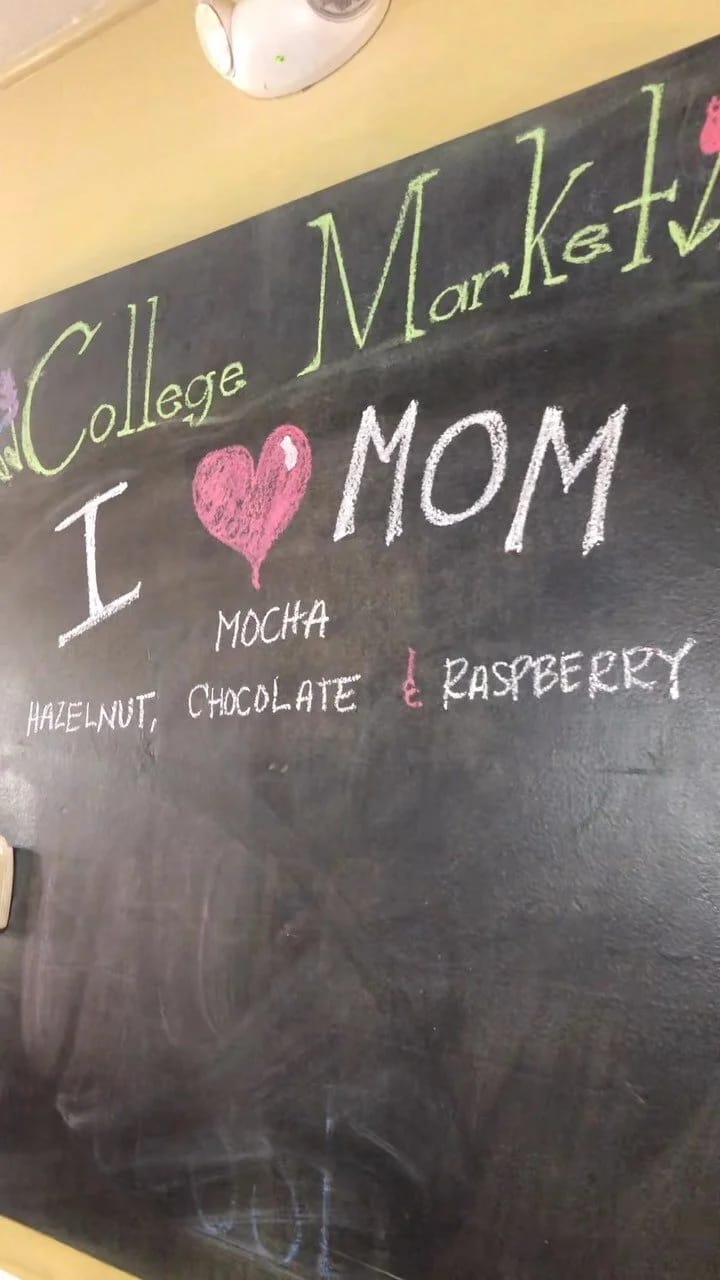 College Market
I ❤ MOM
MOCHA
HAZELNUT, CHOCOLATE & RASPBERRY